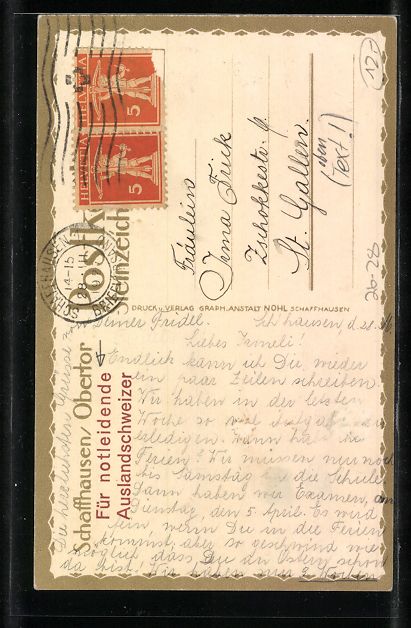 12.-
HELVETIA 5
HELVETIA 5
SCHAFFHAUSEN
14-15
28. III.
BRIEFVERSAND
Postk
Steinzeich
Schaffhausen/Obertor
Für notleidende
Auslandschweizer
Fräulein
Irma Frick
Zschokkestr. 9
St. Gallen.
(Text!)
26-28
DRUCK u. VERLAG GRAPH. ANSTALT NOHL SCHAFFHAUSEN
Deiner Fridel. Schhausen, d. 28.
Liebes Irmeli!
Endlich kann ich Dir wieder
ein paar Zeilen schreiben.
Wir haben in der letzten
Woche so viel
erledigen. Wann hast Du
Ferien? Wir müssen nur noch
bis Samstag in die Schule
Dann haben wir Examen, am
Dienstag, den 5. April. Es wird
fein, wenn Du in die Ferien
kommst, aber so geschwind wie
möglich, dass Du an Ostern schon
da bist! Wir haben nur 2 Wochen
Die herzlichsten Grüsse